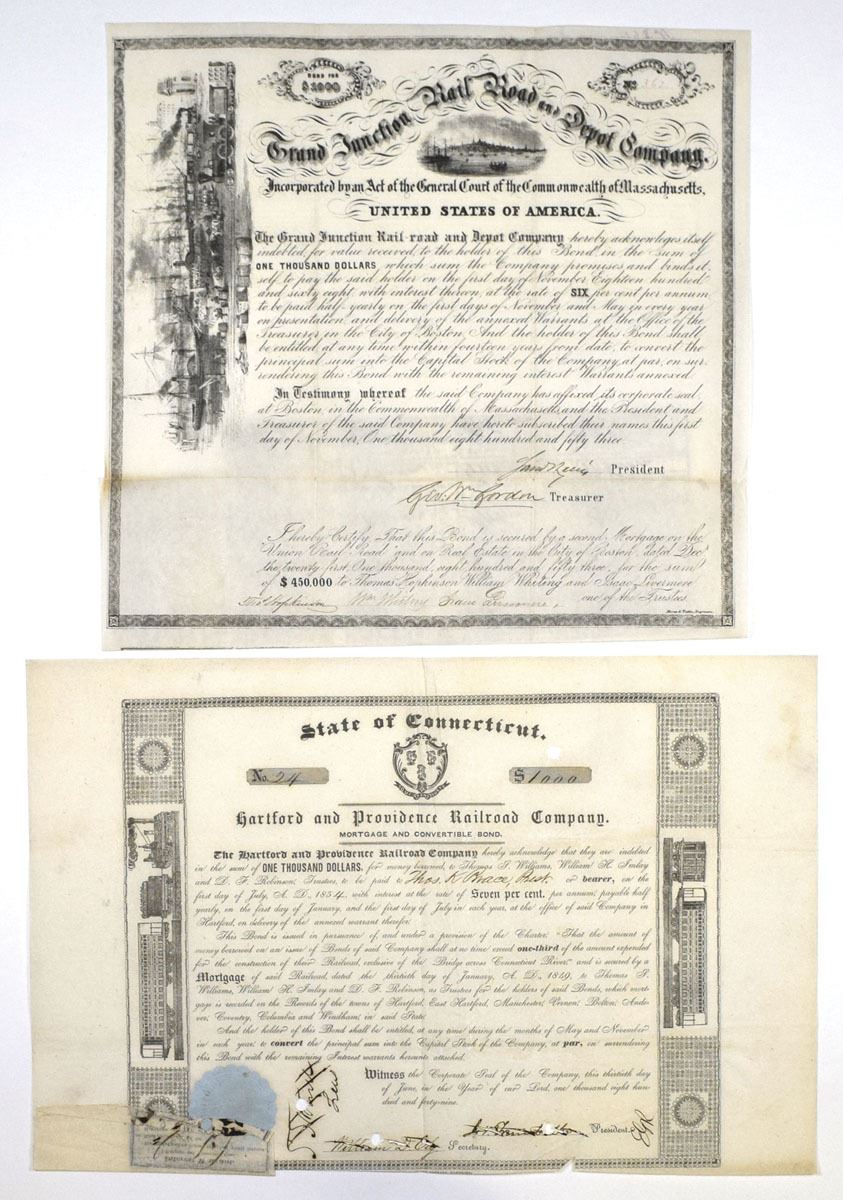 BOND FOR
$1000
No 362
Grand Junction Rail Road and Depot Company.
Incorporated by an Act of the General Court of the Commonwealth of Massachusetts,
UNITED STATES OF AMERICA.
The Grand Junction Rail-road and Depot Company hereby acknowleges itself
indebted for value received, to the holder of this Bond, in the sum of
ONE THOUSAND DOLLARS, which sum the Company promises and binds it-
self to pay the said holder on the first day of November Eighteen hundred
and sixty eight, with interest thereon, at the rate of SIX per cent per annum,
to be paid half-yearly on the first days of November and May in every year
on presentation and delivery of the annexed Warrants at the Office of the
Treasurer in the City of Boston. And the holder of this Bond shall
be entitled at any time within fourteen years from date, to convert the
principal sum into the Capital Stock of the Company, at par, on sur-
rendering this Bond with the remaining interest Warrants annexed.
In Testimony whereof the said Company has affixed its corporate seal
at Boston, in the Commonwealth of Massachusetts, and the President and
Treasurer of the said Company have hereto subscribed their names this first
day of November, One thousand eight hundred and fifty three
President
Geo. Wm. Gordon Treasurer
I hereby Certify, That this Bond is secured by a second Mortgage on the
Union Rail Road and on Real Estate in the City of Boston, dated Dec
the twenty first, One thousand, eight hundred and fifty three, for the sum
of $450,000 to Thomas Hopkinson William Whiting and Isaac Livermore
one of the Trustees
Thos. Hopkinson Wm Whiting Isaac Livermore,
State of Connecticut.
No. 24
$1000
Hartford and Providence Railroad Company.
MORTGAGE AND CONVERTIBLE BOND.
The Hartford and Providence Railroad Company hereby acknowledge that they are indebted
in the sum of ONE THOUSAND DOLLARS, for money borrowed, to Thomas S. Williams, William H. Imlay
and D. F. Robinson, Trustees, to be paid to Thos. K Brace Prest or bearer, on the
first day of July, A. D., 1854, with interest at the rate of Seven per cent. per annum; payable half
yearly, on the first day of January, and the first day of July in each year, at the office of said Company in
Hartford, on delivery of the annexed warrant therefor.
This Bond is issued in pursuance of, and under a provision of the Charter, "That the amount of
money borrowed on an issue of Bonds of said Company shall at no time exceed one-third of the amount expended
for the construction of their Railroad, exclusive of the Bridge across Connecticut River," and is secured by a
Mortgage of said Railroad, dated the thirtieth day of January, A. D., 1849, to Thomas S.
Williams, William H. Imlay and D. F. Robinson, as Trustees for the holders of said Bonds, which mort-
gage is recorded on the Records of the towns of Hartford, East Hartford, Manchester, Vernon, Bolton, Ando-
ver, Coventry, Columbia and Windham, in said State.
And the holder of this Bond shall be entitled, at any time during the months of May and November
in each year, to convert the principal sum into the Capital Stock of the Company, at par, on surrendering
this Bond with the remaining Interest warrants hereunto attached.
Witness the Corporate Seal of the Company, this thirtieth day
of June, in the Year of our Lord, one thousand eight hun-
dred and forty-nine.
President.
Secretary.